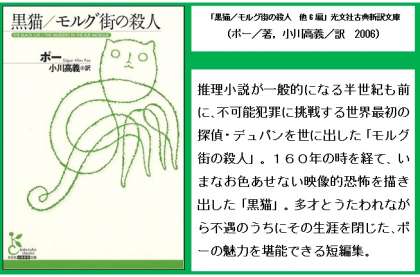 黒猫／モルグ街の殺人
THE BLACK CAT / THE MURDERS IN THE RUE MORGUE
ポー
Edgar Allan Poe
小川高義●訳
「黒猫／モルグ街の殺人　他６編」光文社古典新訳文庫
（ポー／著，小川高義／訳　2006）
推理小説が一般的になる半世紀も前
に、不可能犯罪に挑戦する世界最初の
探偵・デュパンを世に出した「モルグ
街の殺人」。１６０年の時を経て、い
まなお色あせない映像的恐怖を描き
出した「黒猫」。多才とうたわれなが
ら不遇のうちにその生涯を閉じた、ポ
ーの魅力を堪能できる短編集。